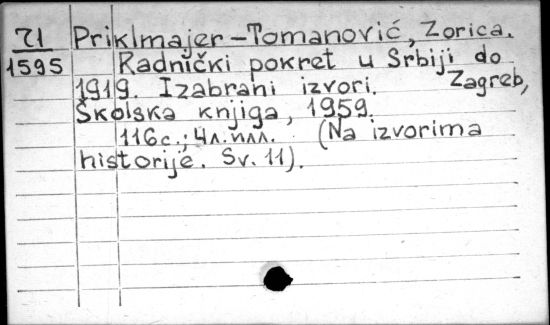 71 Priklmajer-Tomanović, Zorica.
1595 Radnički pokret u Srbiji do
1919. Izabrani izvori. Zagreb,
Školska knjiga, 1959.
116с.; 4л. илл. (Na izvorima
historije. Sv. 11).